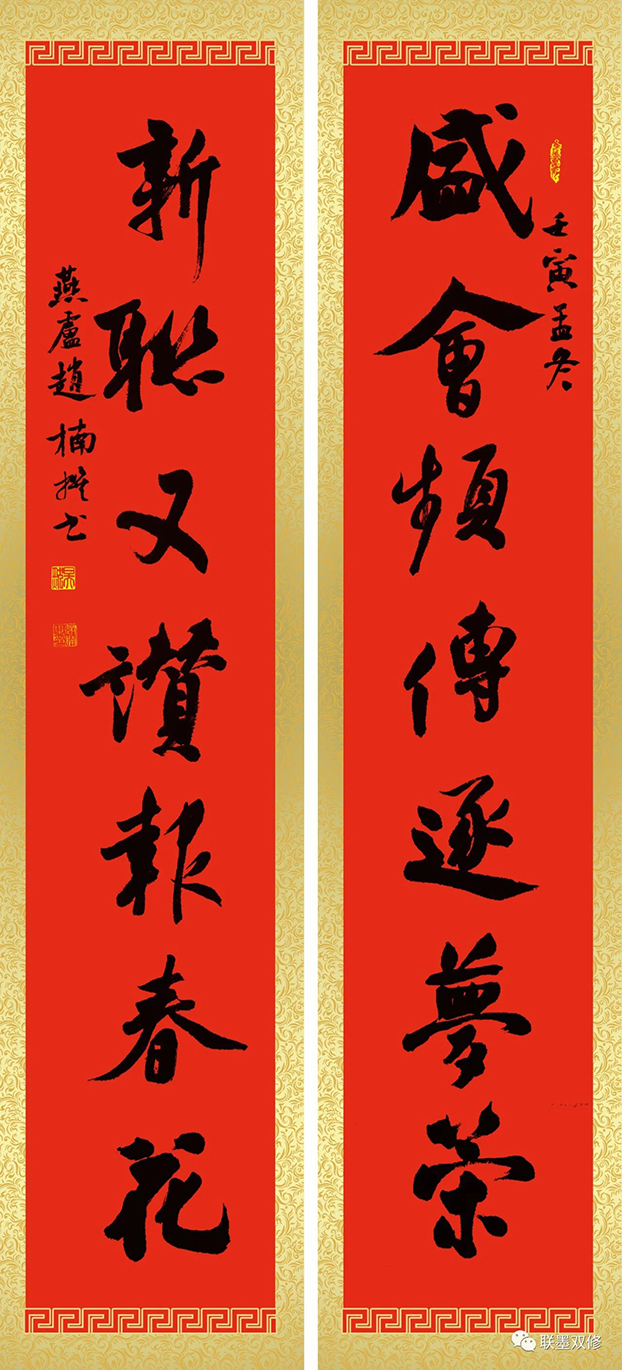 盛會頻傳逐夢荣
壬寅孟冬
新聯又讚報春花
燕盧趙楠撰书
联墨双修